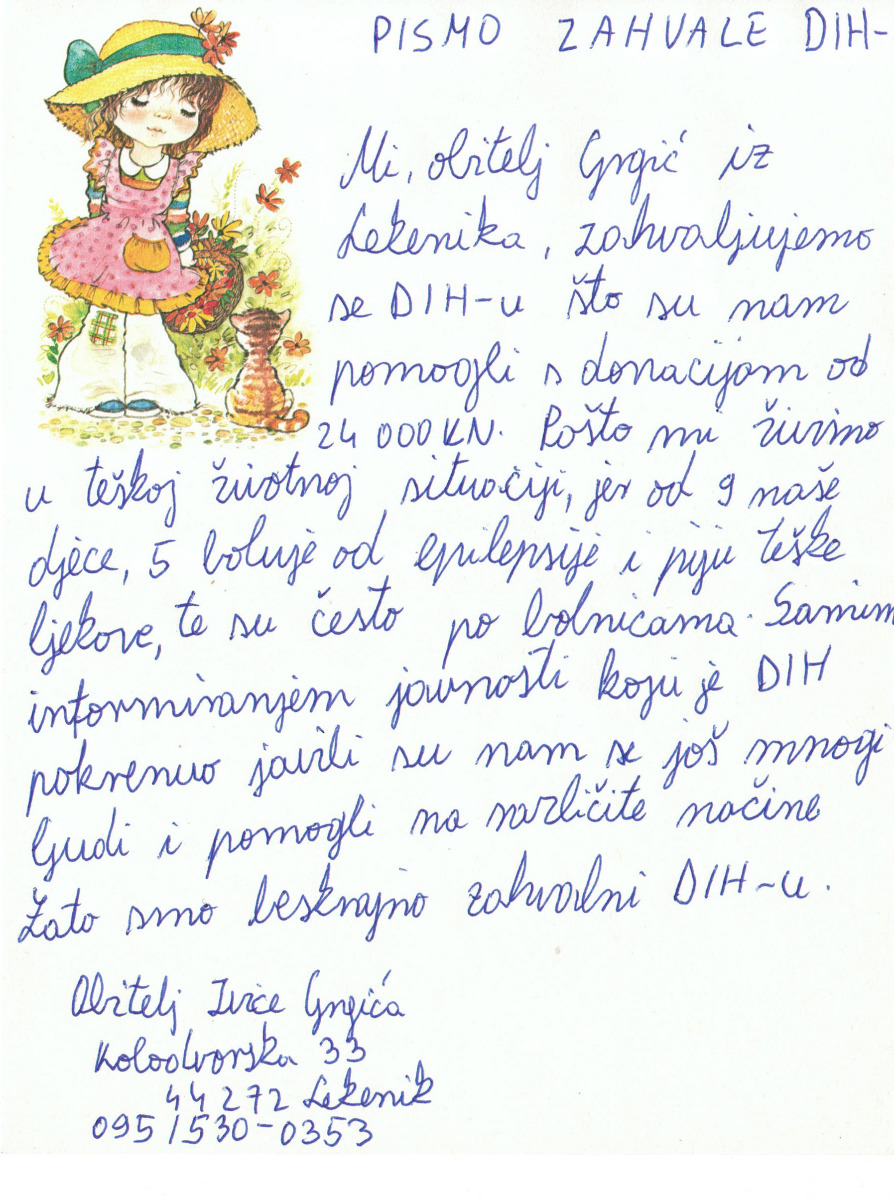 PISMO ZAHVALE DIH-
Mi, obitelj Grgić iz
Lekenika, zahvaljujemo
se DIH-u što su nam
pomogli s donacijom od
24 000 KN. Pošto mi živimo
u teškoj životnoj situaciji, jer od 9 naše
djece, 5 boluje od epilepsije i piju teške
ljekove, te su često po bolnicama. Samim
informiranjem javnosti koju je DIH
pokrenuo javili su nam se još mnogi
ljudi i pomogli na različite načine
Zato smo beskrajno zahvalni DIH-u.
Obitelj Ivice Grgića
Kolodvorska 33
44 272 Lekenik
095/530-0353